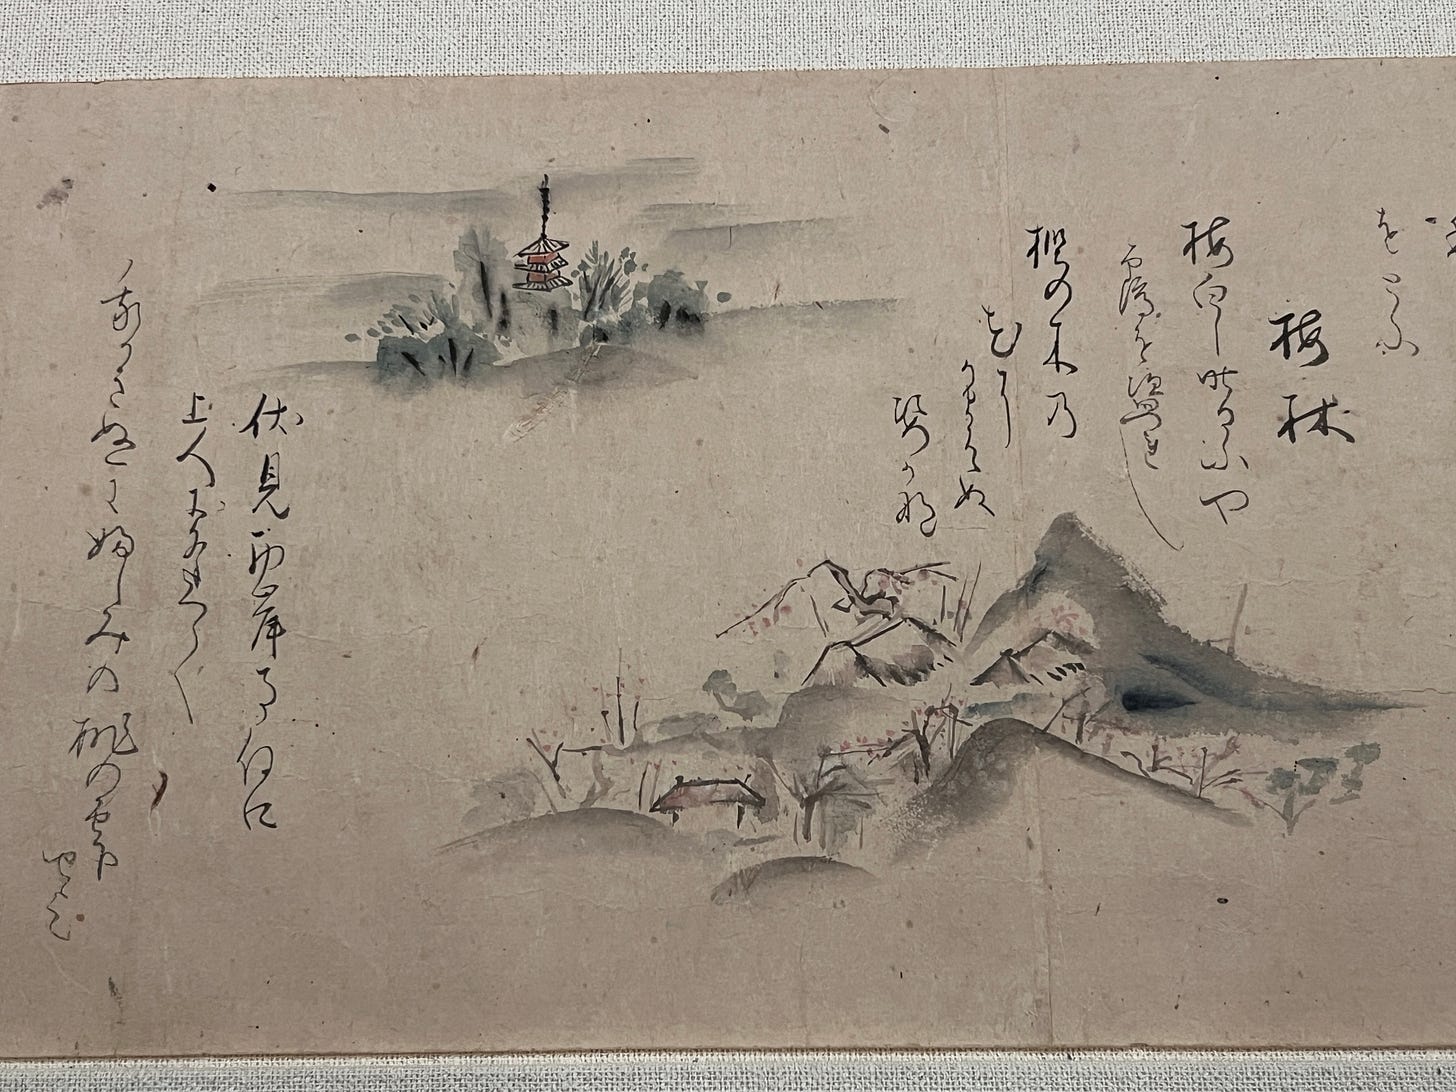 をとふ
梅林
梅白し昨日ふや
靏を盗れし
樫の木乃
花に
かまはぬ
姿かな
伏見西岸寺任口
上人に
我かきぬにふしみの桃の雫
せよ